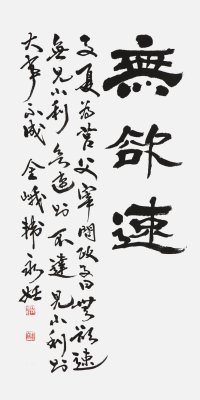 無欲速
子夏為莒父宰問政子曰無欲速
無見小利欲速則不達見小利則
大事不成 金峨韓永